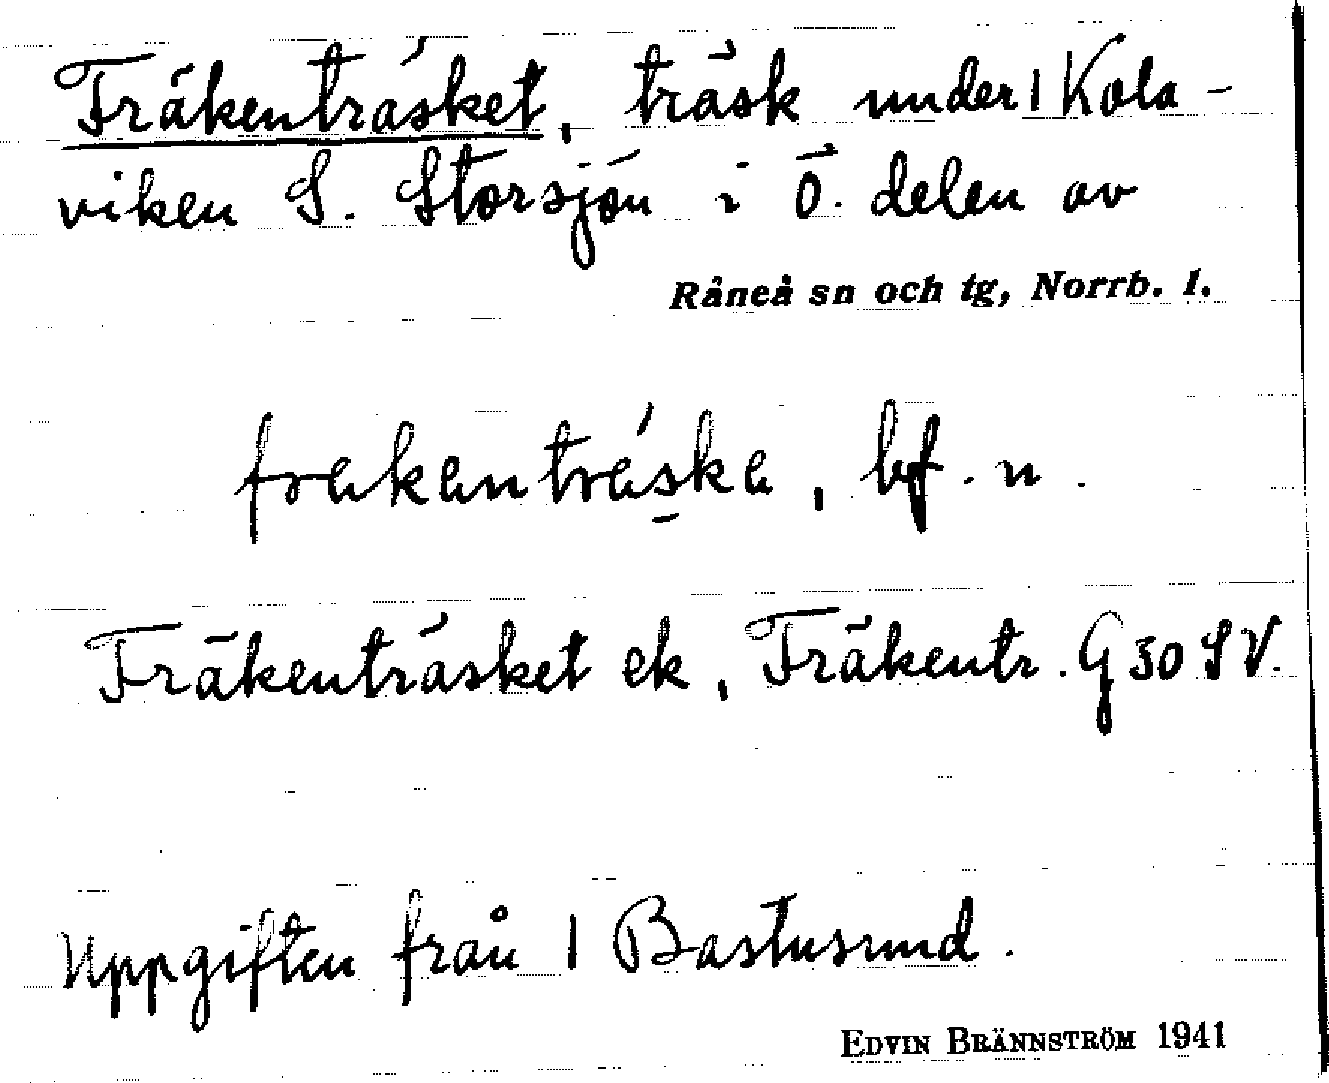 Fräkenträsket, träsk under 1 Kola-
viken S. Storsjön i Ö. delen av
Råneå sn och tg, Norrb. l.
frekenträske, bf. n.
Fräkenträsket ek, Fräkentr. G 30 SV.
Uppgiften från 1 Bastusund.
EDVIN BRÄNNSTRÖM 1941